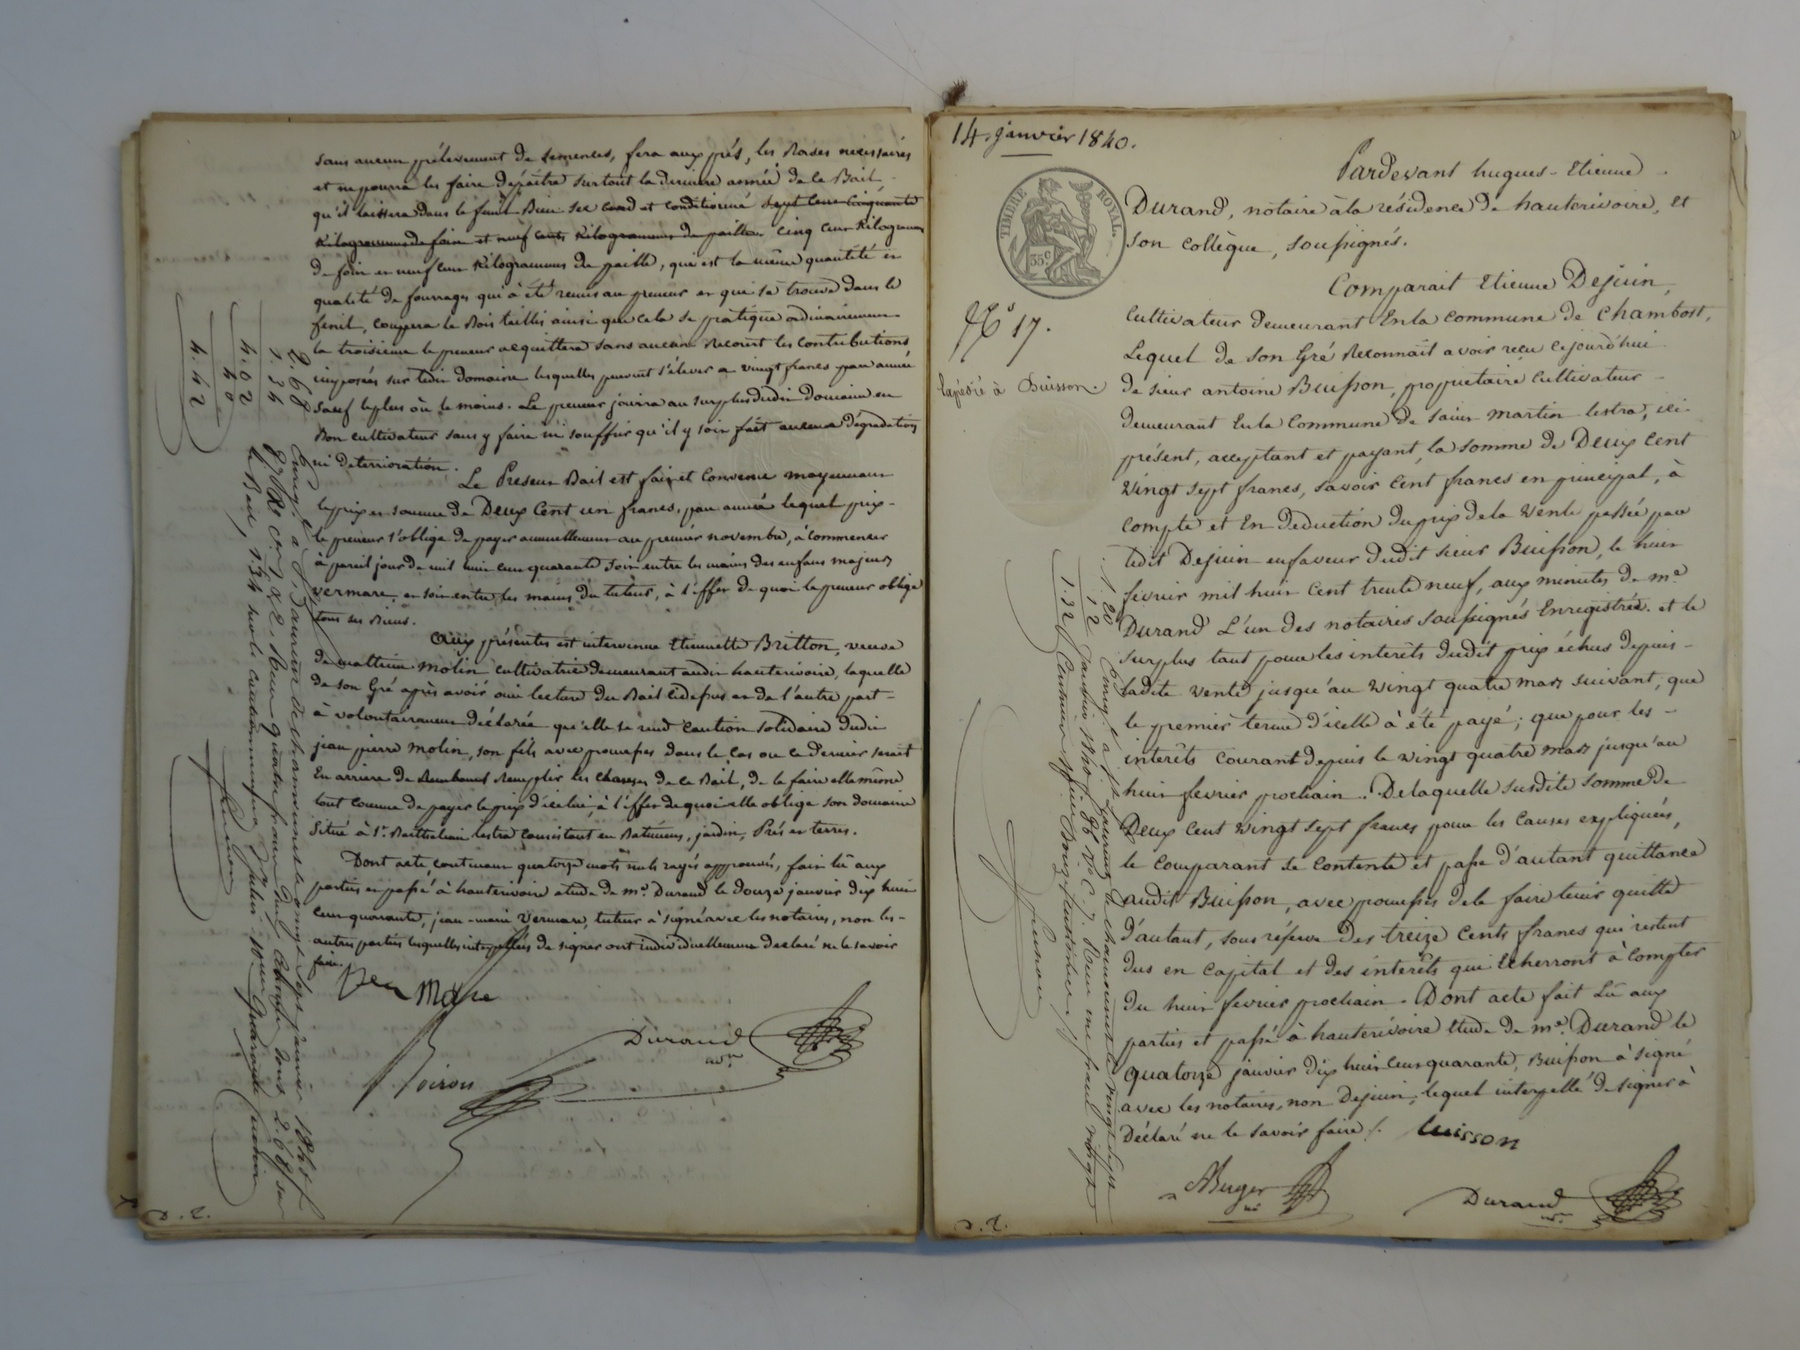 sans aucun prélevement de semences, fera aux prés, les Rases necessaires
et ne pourra les faire dépaitre surtout la derniere année de ce Bail,
qu'il laissera dans le fenil Bien sec et conditionné sept cent cinquante
Kilogrammes de foin et neuf cents Kilogrammes de paille. cinq cent Kilogrammes
de foin et neuf cent Kilogrammes de paille, que est la même quantité et
qualité de fourrages qui à été remis au preneur et qui se trouve dans le
fenil, coupera le Bois taillis ainsi que cela se pratique ordinairement
la troisieme le preneur acquittera sans aucun Recours les contributions
imposées sur ledit domaine lesquelles peuvent s'élever a vingt francs par année
sauf le plus où le moins. Le preneur jouira au surplus dudit Domaine en
Bon cultivateur sans y faire ni souffrir qu'il y soit fait aucune Dégradation
ni deterioration.
Le Present Bail est fait et convenu moyennant
le prix et somme de Deux Cent un francs, par année lequel prix
le preneur s'oblige de payer annuellement au premier novembre, à commencer
à pareil jour de mil huit cent quarante soit entre les mains des enfans majeurs
vermare, et soit entre les mains du tuteur, à l'effet de quoi le preneur oblige
tous ses Biens.
Aux présentes est intervenue Etiennette Britton, veuve
de mathieu Molin cultivatrice demeurant audit hauterivoire, laquelle
de son Gré après avoir ouie lecture du Bail cidessus et de l'autre part
à volontairement déclarée qu'elle se rend caution solidaire dudit
jean pierre Molin, son fils avec promesses dans le Cas ou ce dernier serait
En arriere de Remplir les charges de ce Bail, de le faire elle même
tout comme de payer le prix d'icelui, à l'effet de quoi elle oblige son domaine
Situé à St. Barthelemi lestra consistant en Batimens, jardin, Prés et terres.
Dont acte, contenant quatorze mots nuls rayés approuvés, fait lû aux
parties et passé à hauterivoire etude de me. Durand le douze janvier dix huit
cent quarante, jean-marie Vermare, tuteur à signé avec les notaires, non les
autres parties lesquelles interpellées de signer ont individuellement declaré ne le savoir
faire.
Vermare
Durand
Noiron
2. 68
1. 34
4. 02
40
4. 42
4. 42
D. 2.
14. janvier 1840.
TIMBRE ROYAL.
35c
No 17.
Expédié à Buisson.
Pardevant hugues-Etienne
Durand, notaire à la résidence de hauterivoire, et
son collègue, soussignés.
Comparait Etienne Dejuin,
cultivateur demeurant En la commune de Chambost,
Lequel de son Gré Reconnait avoir reçu cejourd'hui
de sieur antoine Buisson, propriétaire cultivateur
demeurant En la Commune de saint martin lestra, ici
présent, acceptant et payant, la somme de Deux Cent
vingt sept francs, savoir Cent francs en principal, à
compte et En Deduction Du prix de la Vente passée par
ledit Dejuin en faveur dudit sieur Buisson, le huit
février mil huit Cent trente neuf, aux minutes de me
Durand L'un des notaires soussignés Enregistrée. et le
surplus tant pour les interêts dudit prix échus depuis
ladite vente jusqu'au vingt quatre mars suivant, que
le premier terme d'icelle à été payé; que pour les
interêts courant depuis le vingt quatre mars jusqu'au
huit fevrier prochain. De laquelle susdite somme de
Deux cent vingt sept francs pour les causes expliquées,
le comparant se contente et passe d'autant quittance
audit Buisson, avec promesses de le faire tenir quitte
d'autant, sous réserve Des treize Cents francs qui restent
dus en capital et des interêts qui Echerront à compter
du huit fevrier prochain. Dont acte fait Lû aux
parties et passé à hauterivoire Etude de me. Durand le
quatorze janvier dix huit cent quarante, Buisson à signé
avec les notaires, non Dejuin, lequel interpellé de signer à
Déclaré ne le savoir faire /.
buisson
ABerger
Durand
1. 20
12
1. 32
D. 2.